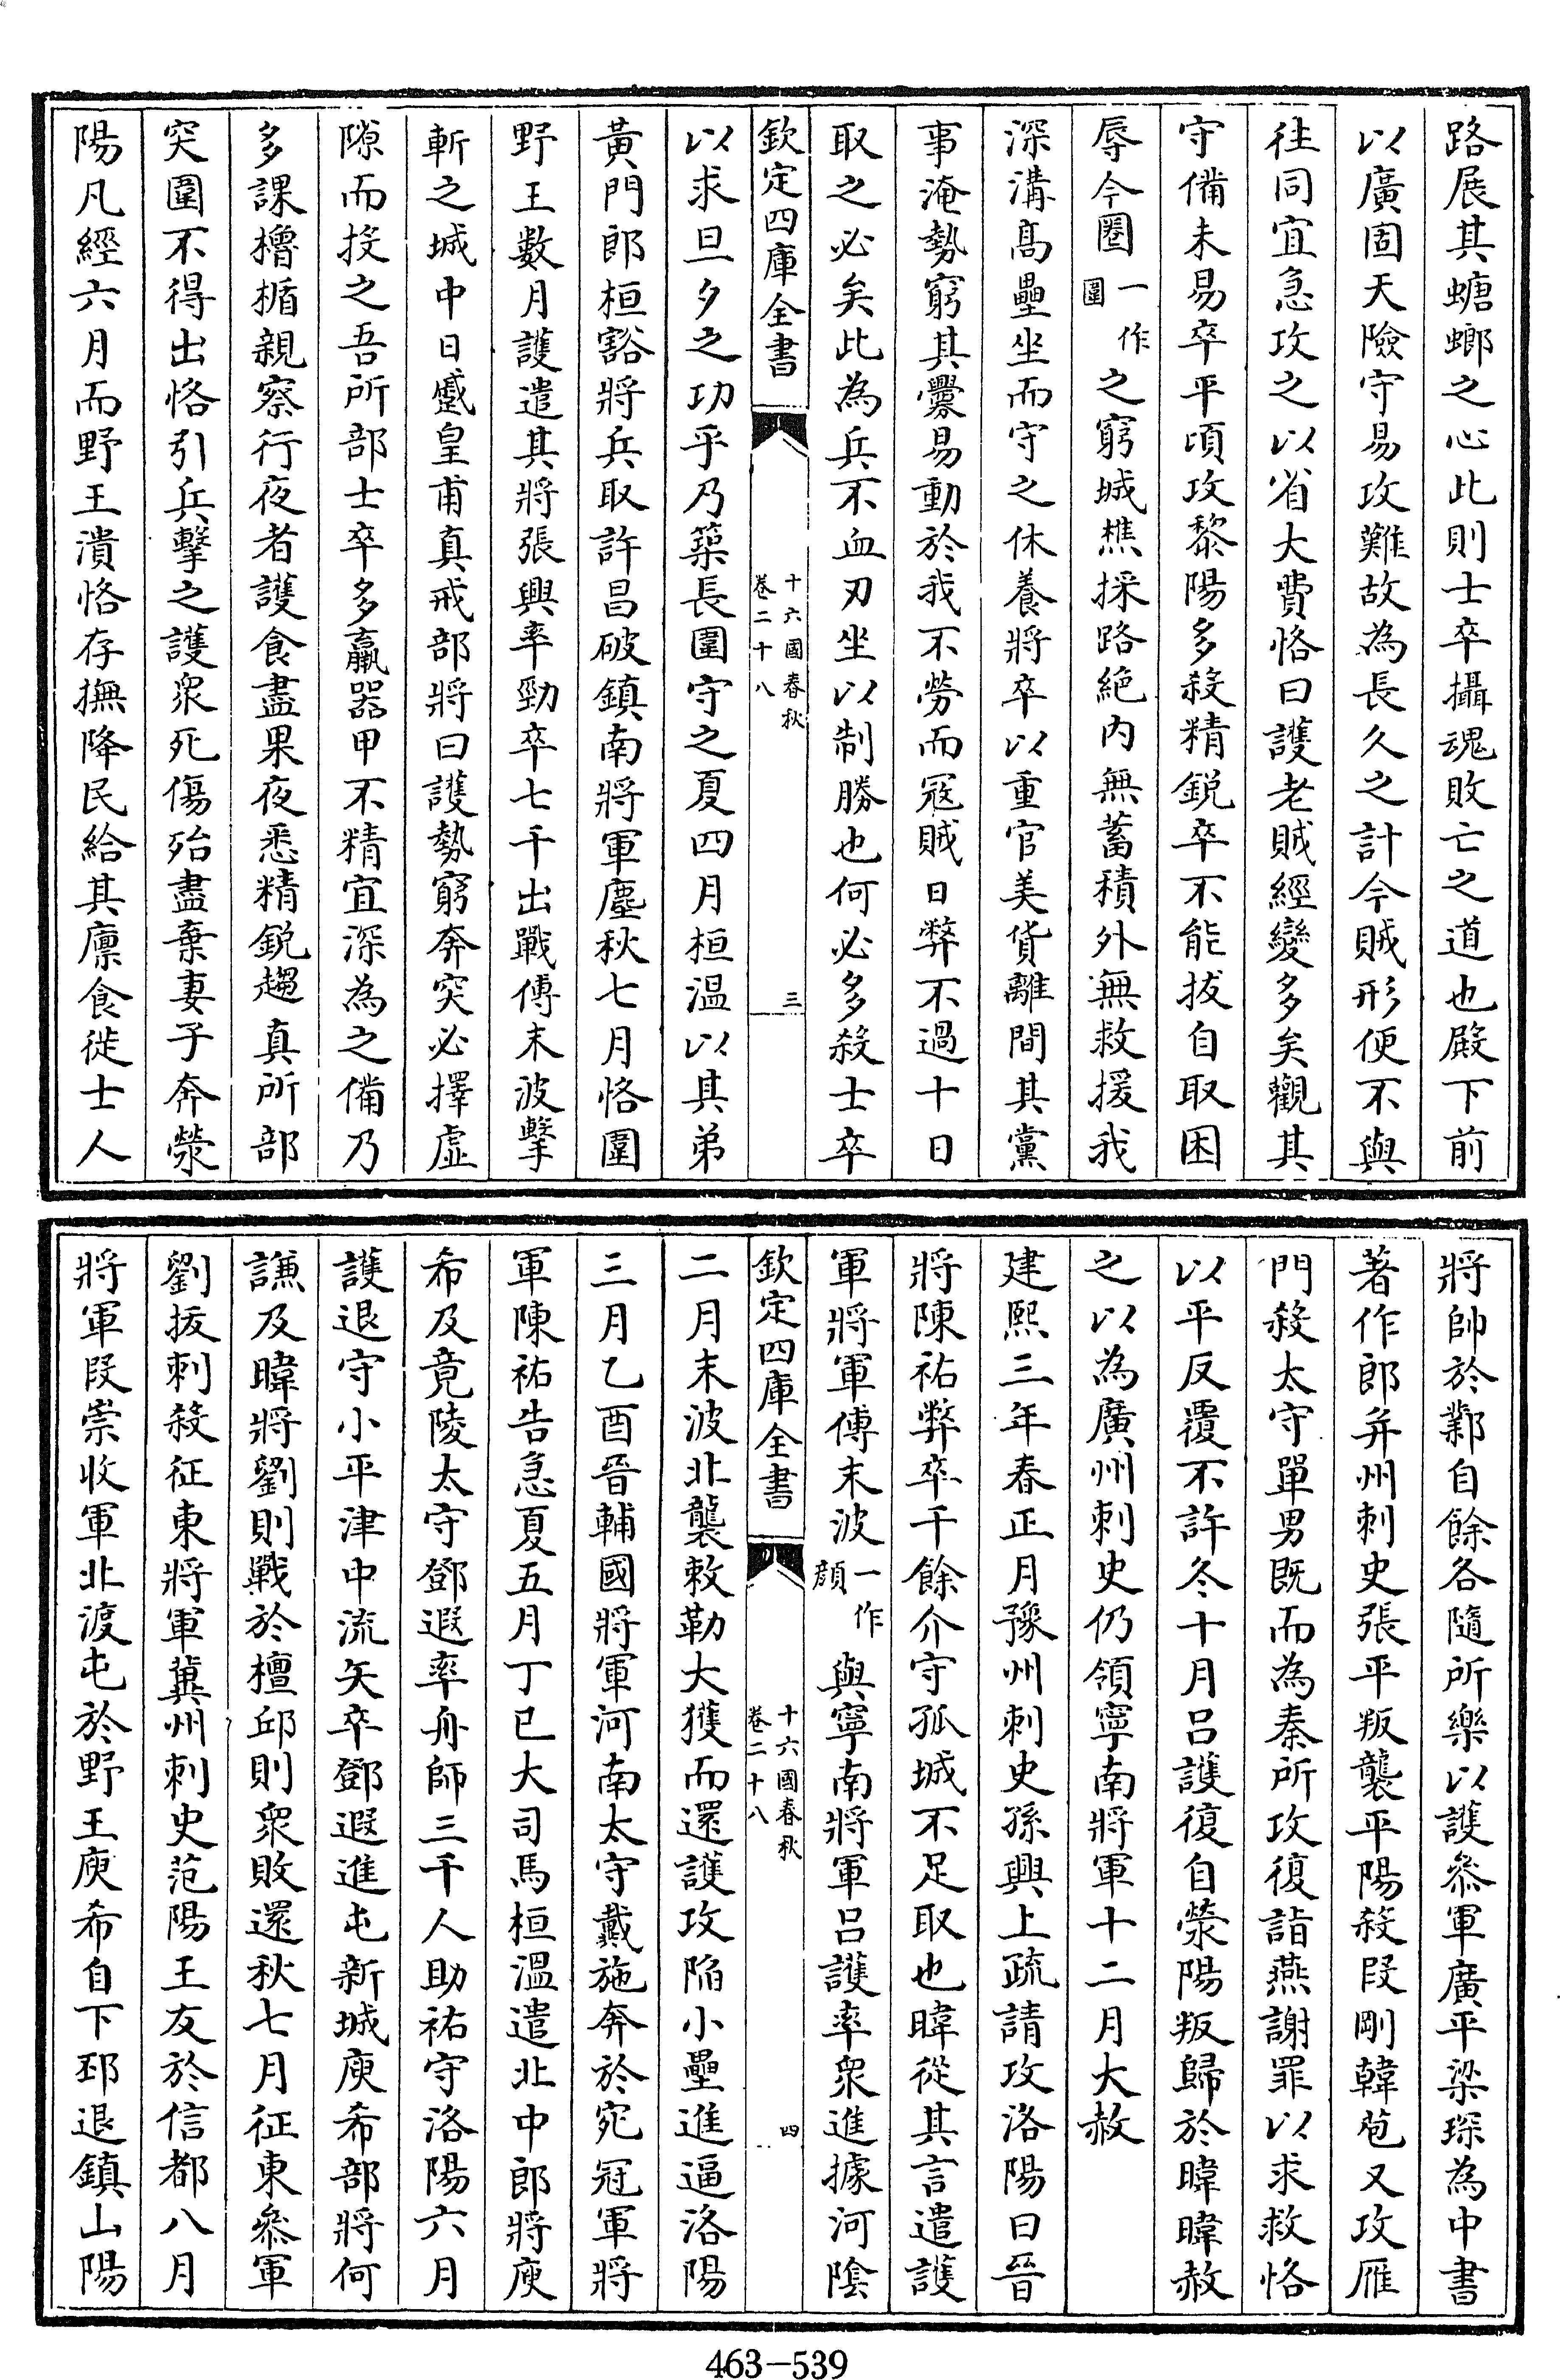 路展其螗螂之心此則士卒攝魂敗亡之道也殿下前
以廣固天險守易攻難故為長久之計今賊形便不與
徃同宜急攻之以省大費恪曰護老賊經變多矣觀其
守備未易卒平頃攻黎陽多殺精銳卒不能拔自取困
辱今圈一作圍之窮城樵採路絶内無蓄積外無救援我
深溝高壘坐而守之休養將卒以重官美貨離間其黨
事淹勢窮其釁易動於我不勞而冦賊日弊不過十日
取之必矣此為兵不血刃坐以制勝也何必多殺士卒
欽定四庫全書
十六國春秋
卷二十八
三
以求旦夕之功乎乃築長圍守之夏四月桓溫以其弟
黃門郎桓豁將兵取許昌破鎮南將軍塵秋七月恪圍
野王數月護遣其將張興率勁卒七千出戰傅末波擊
斬之城中日蹙皇甫真戒部將曰護勢窮奔突必擇虛
隙而投之吾所部士卒多羸器甲不精宜深為之備乃
多課櫓楯親察行夜者護食盡果夜悉精銳趨真所部
突圍不得出恪引兵擊之護衆死傷殆盡棄妻子奔滎
陽凡經六月而野王潰恪存撫降民給其廪食徙士人
將帥於鄴自餘各隨所樂以護叅軍廣平梁琛為中書
著作郎并州刺史張平叛襲平陽殺段剛韓苞又攻雁
門殺太守單男既而為秦所攻復詣燕謝罪以求救恪
以平反覆不許冬十月吕護復自滎陽叛歸於暐暐赦
之以為廣州刺史仍領寧南將軍十二月大赦
建熙三年春正月豫州刺史孫興上疏請攻洛陽曰晉
將陳祐弊卒千餘介守孤城不足取也暐從其言遣護
軍將軍傅末波一作顔與寧南將軍吕護率衆進據河隂
欽定四庫全書
十六國春秋
卷二十八
四
二月末波北襲敕勒大獲而還護攻陥小壘進逼洛陽
三月乙酉晉輔國將軍河南太守戴施奔於宛冠軍將
軍陳祐告急夏五月丁巳大司馬桓溫遣北中郎將庾
希及竟陵太守鄧遐率舟師三千人助祐守洛陽六月
護退守小平津中流矢卒鄧遐進屯新城庾希部將何
謙及暐將劉則戰於檀邱則衆敗還秋七月征東叅軍
劉拔刺殺征東將軍冀州刺史范陽王友於信都八月
將軍段崇收軍北渡屯於野王庾希自下邳退鎮山陽
463-539